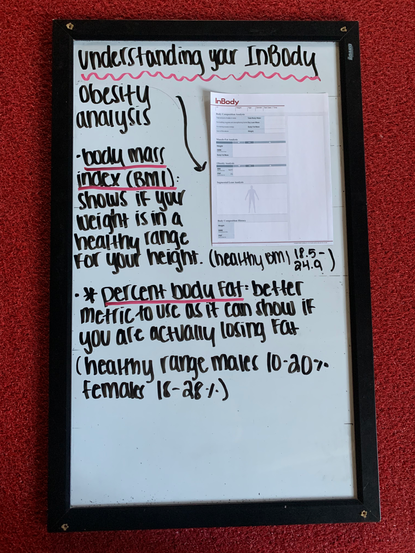 understanding your InBody
Obesity
analysis
InBody
• body mass
index (BMI):
shows if your
weight is in a
healthy range
for your height. (healthy BMI 18.5-
24.9)
• * percent body fat: better
metric to use as it can show if
you are actually losing fat
(healthy range males 10-20%
females 18-28%)